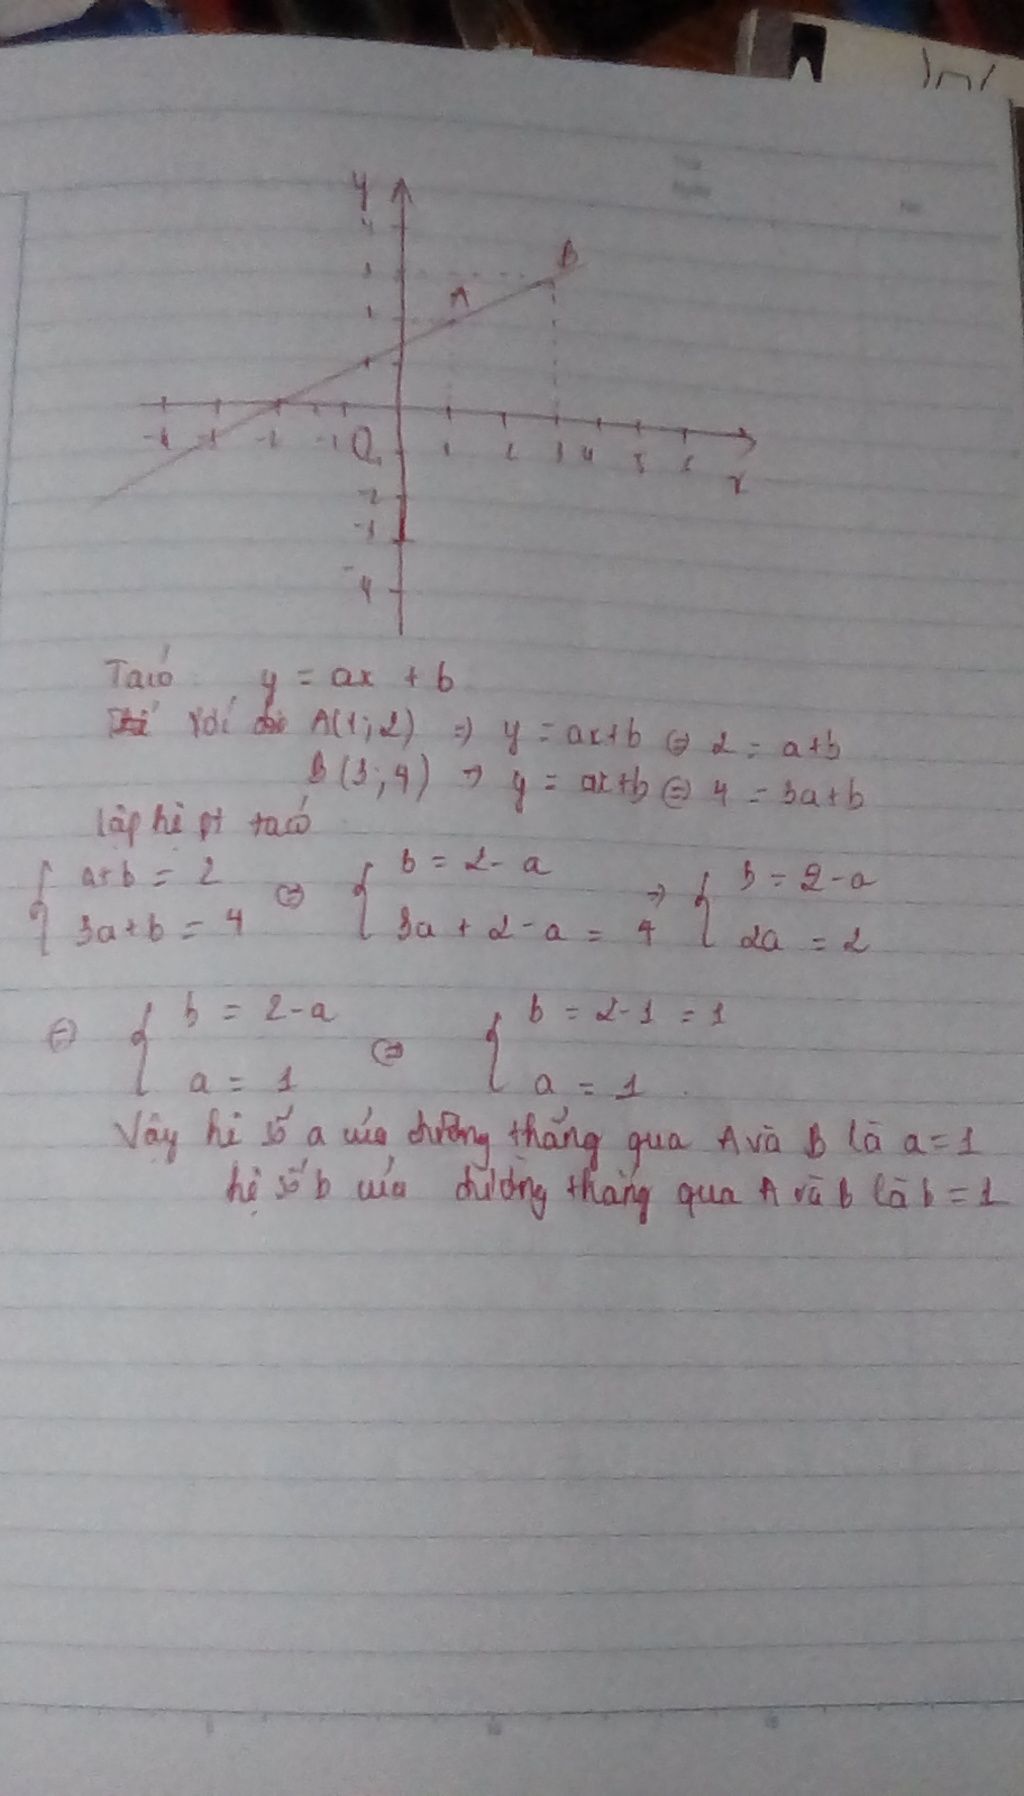 y
4
3
A
B
-4 -3 -2 -1 O 1 2 3 4 5 6
x
-2
-3
-4
Ta có: y = ax + b
với A(1;2) => y = ax+b <=> 2 = a+b
B(3;4) => y = ax+b <=> 4 = 3a+b
lập hệ pt ta có
{ a+b = 2 <=> { b = 2-a => { b = 2-a
{ 3a+b = 4 { 3a + 2-a = 4 { 2a = 2
<=> { b = 2-a <=> { b = 2-1 = 1
{ a = 1 { a = 1
Vậy hệ số a của đường thẳng qua A và B là a=1
hệ số b của đường thẳng qua A và B là b=1